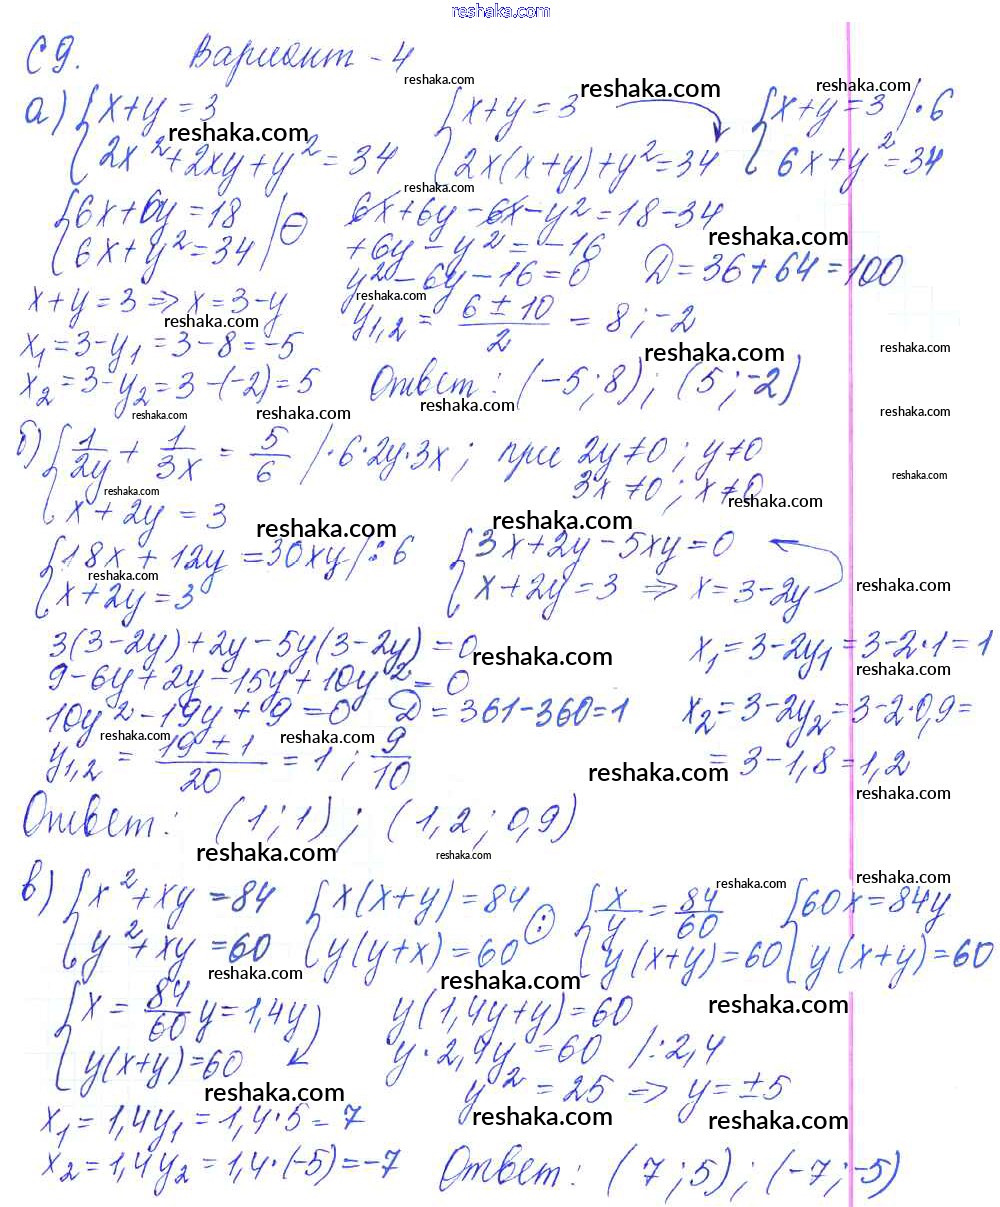 reshaka.com
С 9. Вариант - 4
а) { x + y = 3 { x + y = 3 { x + y = 3 | · 6
2x² + 2xy + y² = 34 2x(x + y) + y² = 34 6x + y² = 34
{ 6x + 6y = 18 6x + 6y - 6x - y² = 18 - 34
6x + y² = 34 | ⊖ + 6y - y² = -16
y² - 6y - 16 = 0 D = 36 + 64 = 100
x + y = 3 ⇒ x = 3 - y y₁,₂ = (6 ± 10)/2 = 8 ; -2
x₁ = 3 - y₁ = 3 - 8 = -5
x₂ = 3 - y₂ = 3 - (-2) = 5 Ответ: (-5; 8); (5; -2)
б) { 1/2y + 1/3x = 5/6 | · 6 · 2y · 3x ; при 2y ≠ 0 ; y ≠ 0
3x ≠ 0 ; x ≠ 0
x + 2y = 3
{ 18x + 12y = 30xy | : 6 { 3x + 2y - 5xy = 0
x + 2y = 3 x + 2y = 3 ⇒ x = 3 - 2y
3(3 - 2y) + 2y - 5y(3 - 2y) = 0 x₁ = 3 - 2y₁ = 3 - 2 · 1 = 1
9 - 6y + 2y - 15y + 10y² = 0
10y² - 19y + 9 = 0 D = 361 - 360 = 1 x₂ = 3 - 2y₂ = 3 - 2 · 0,9 =
y₁,₂ = (19 ± 1)/20 = 1 ; 9/10 = 3 - 1,8 = 1,2
Ответ: (1; 1); (1,2; 0,9)
в) { x² + xy = 84 { x(x + y) = 84 { x/y = 84/60 { 60x = 84y
y² + xy = 60 y(y + x) = 60 (:) y(x + y) = 60 y(x + y) = 60
{ x = 84/60 y = 1,4y y(1,4y + y) = 60
y(x + y) = 60 y · 2,4y = 60 | : 2,4
y² = 25 ⇒ y = ±5
x₁ = 1,4y₁ = 1,4 · 5 = 7
x₂ = 1,4y₂ = 1,4 · (-5) = -7 Ответ: (7; 5); (-7; -5)